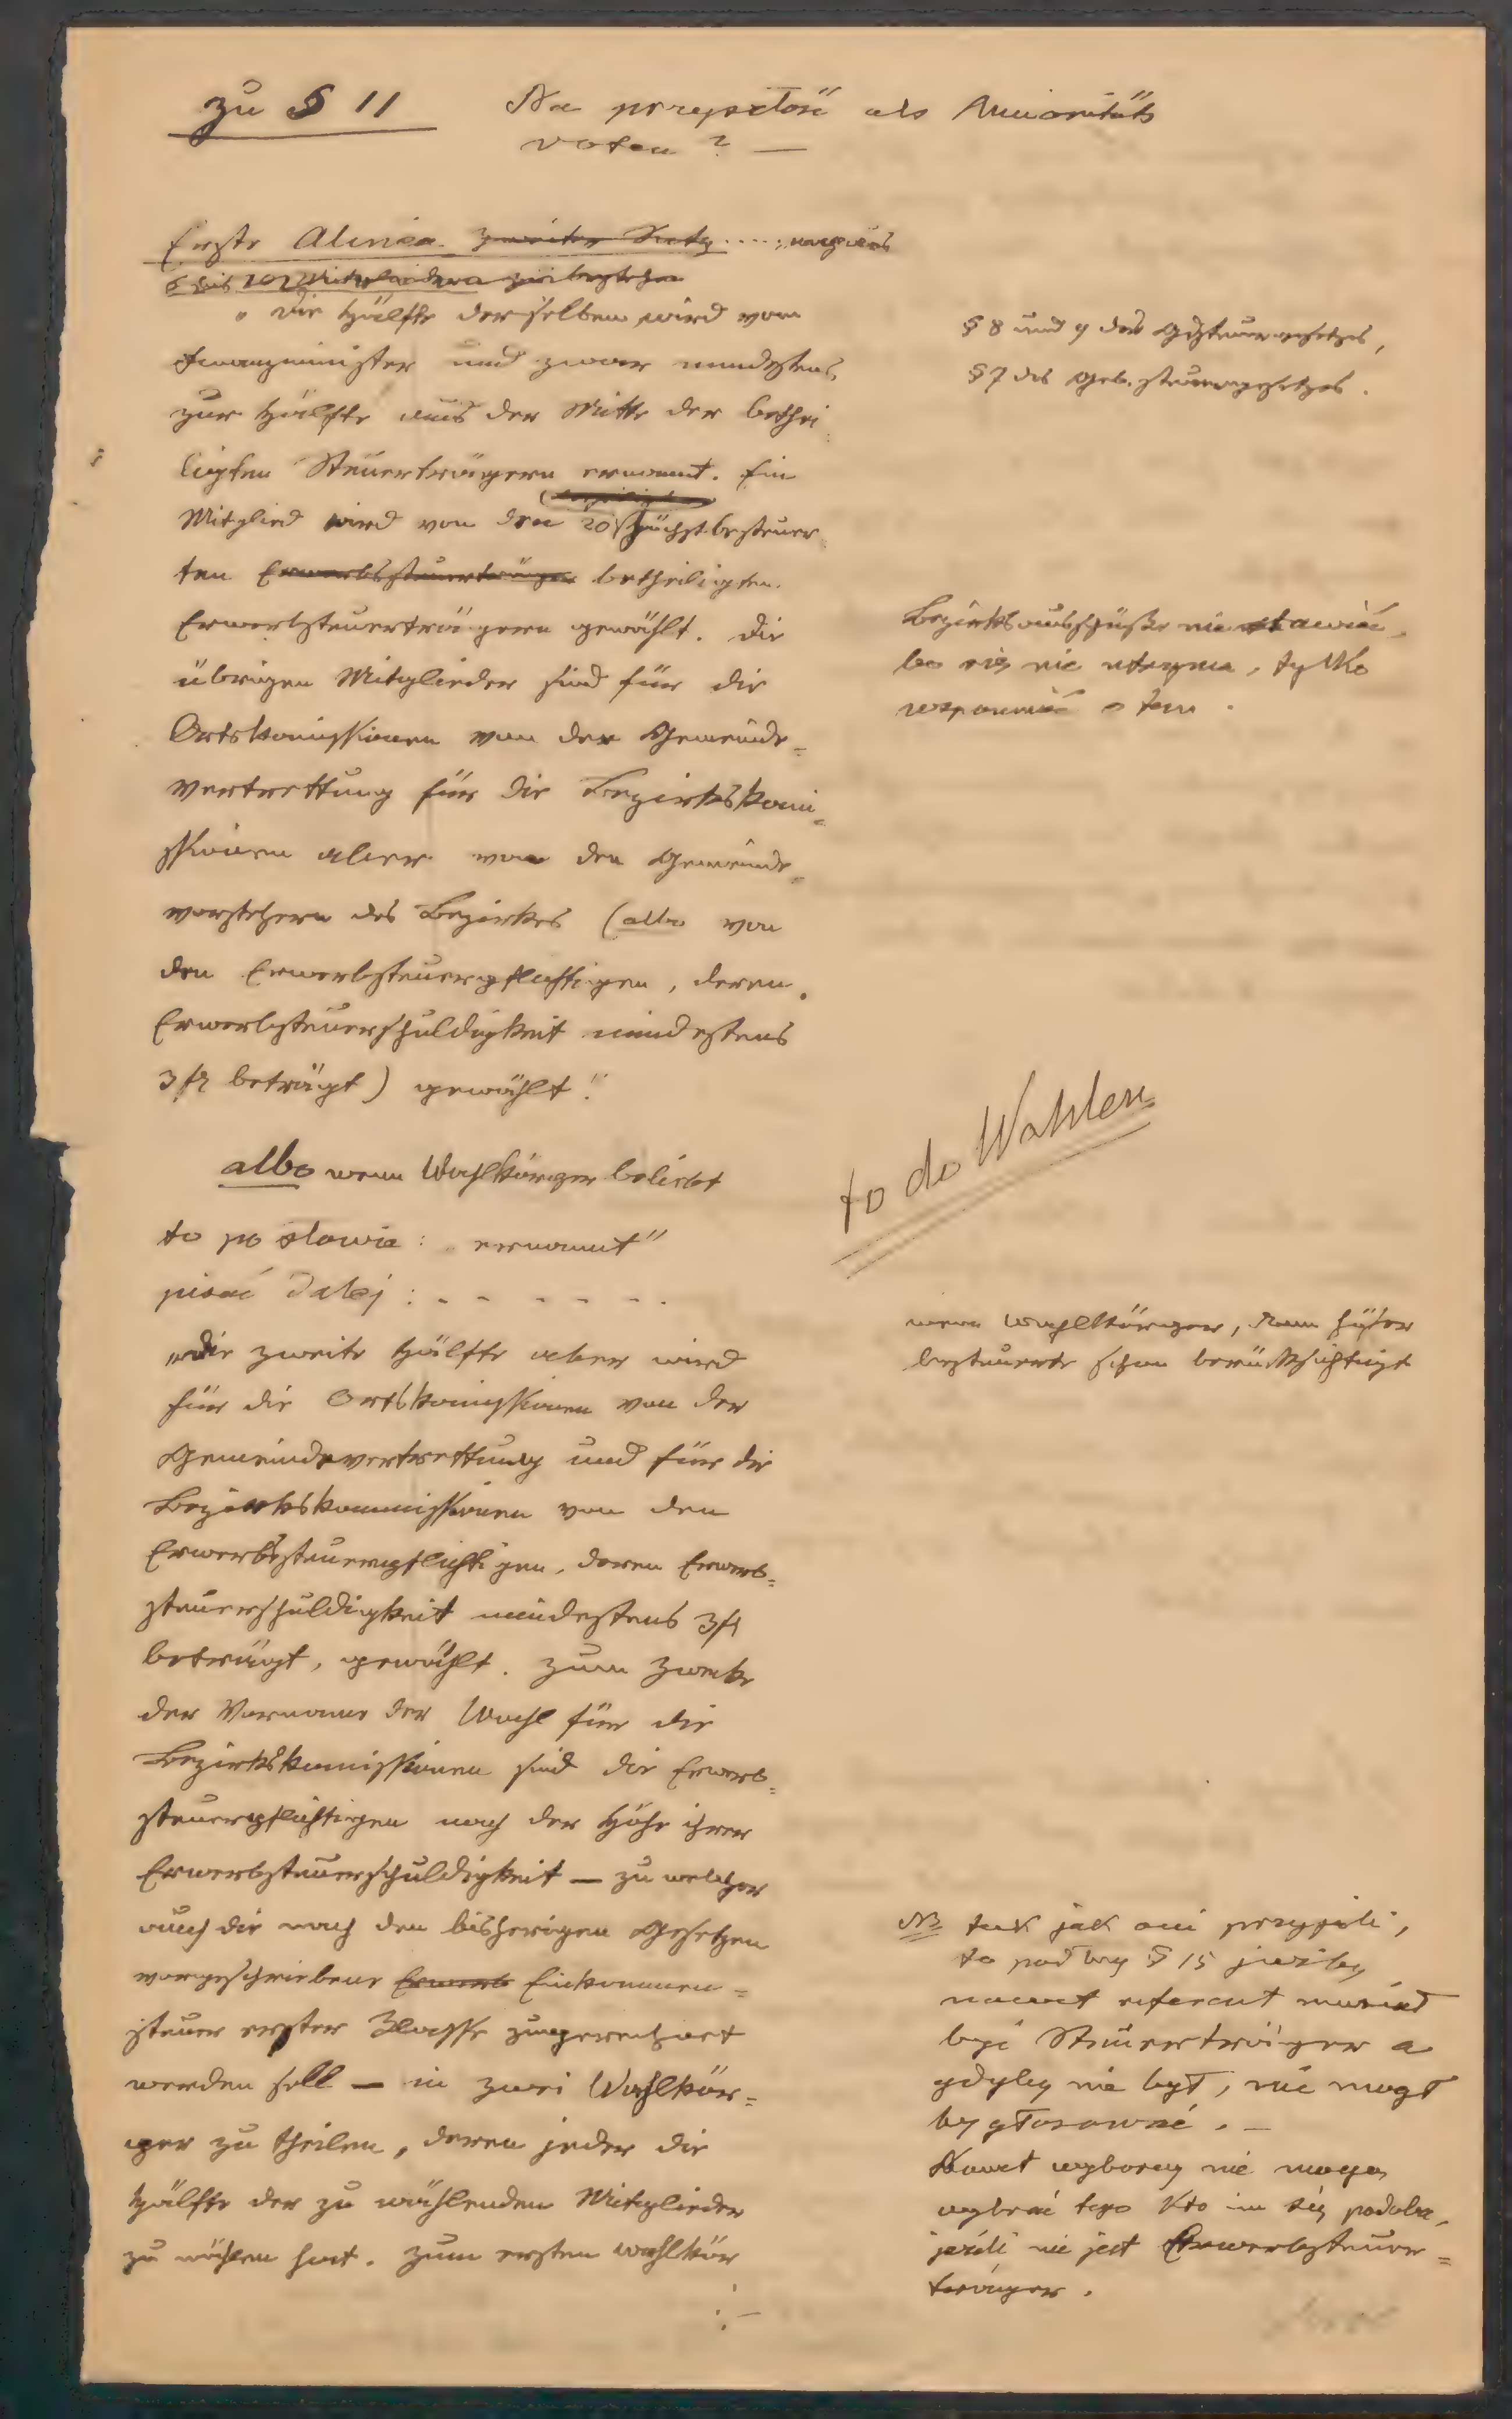 zu § 11
Na przyszłość als Minoritäts
voten ? —
Erste Alinea. zweiter Satz ....
5 bis 10 Mitgliedern zu bestehen
" Die Hälfte derselben wird vom
Finanzminister und zwar mindestens
zur Hälfte aus der Mitte der bethei
ligten Steuerträgern ernannt. Ein
Mitglied wird von den 20 höchstbesteuer
ten Erwerbssteuerträger betheiligten
Erwerbsteuerträgern gewählt. Die
übrigen Mitglieder sind für die
Ortskomissionen von der Gemeinde=
vertrettung für die Bezirkskomi=
ssionen aber von den Gemeinde=
vorstehern des Bezirkes (albo von
den Erwerbsteuerpflichtigen, deren
Erwerbsteuerschuldigkeit mindestens
3 fl beträgt) gewählt."
albo wenn Wahlkörper beliebt
to po słowie: „ernannt"
pisać dalej: - - - - - -
„die zweite Hälfte aber wird
für die Ortskomissionen von der
Gemeindevertrettung und für die
Bezirkskommissionen von den
Erwerbssteuerpflichtigen, deren Erwerb=
steuerschuldigkeit mindestens 3 fl
beträgt, gewählt. Zum Zwecke
der Vornahme der Wahl für die
Bezirkskomissionen sind die Erwerb=
steuerpflichtigen nach der Höhe ihrer
Erwerbsteuerschuldigkeit — zu welcher
auch die nach den bisherigen Gesetzen
vorgeschriebene Erwerb Einkommen=
steuer erster Klasse zugerechnet
werden soll — in zwei Wahlkör=
per zu theilen, deren jeder die
Hälfte der zu wählenden Mitglieder
zu wählen hat. Zum ersten Wahlkör
§ 8 und 9 des Gdsteuergesetzes,
§ 7 des Geb. steuergesetzes.
Bezirksausschüsse nie stawiać,
bo się nie utrzyma, tylko
wspomnieć o tem.
to do Wahlen
wenn Wahlkörper, dann höher
besteuerte schon berücksichtigt
NB tak jak oni przyjęli,
to podług § 15 jużby
nawet referent musiał
być Steuerträger a
gdyby nie był, nie mógł
by głosować. —
Nawet wyborcy nie mogą
wybrać tego kto im się podoba,
jeżeli nie jest Erwerbsteuer=
träger.